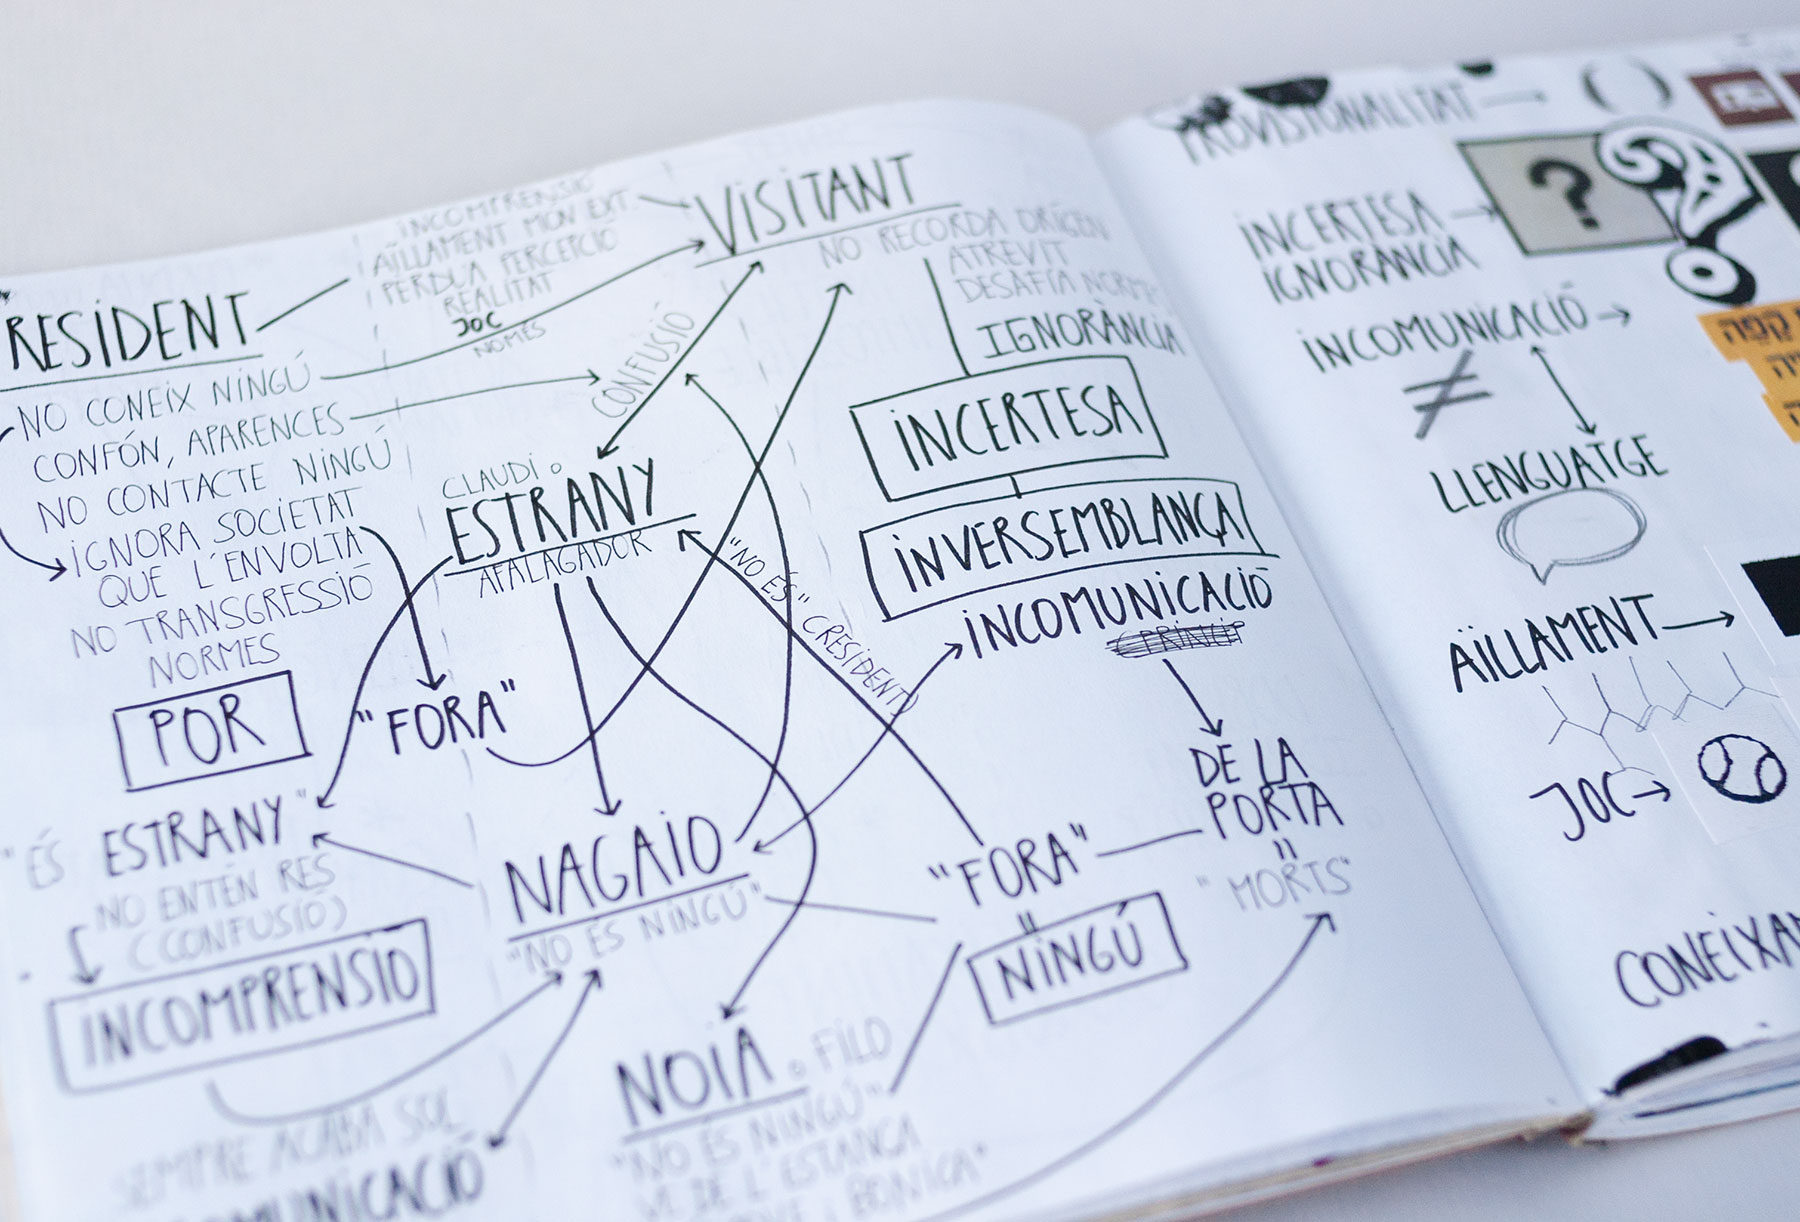 INCOMPRENSIÓ
AÏLLAMENT MÓN EXT.
PERDUA PERCEPCIÓ
REALITAT
JOC
NOMÉS
VISITANT
NO RECORDA ORÍGEN
ATREVIT
DESAFÍA NORM
IGNORÀNCIA
INCERTESA
INVERSEMBLANÇA
INCOMUNICACIÓ
DE LA
PORTA
"
"MORTS"
RESIDENT
NO CONEIX NINGÚ
CONFÓN, APARENCES
NO CONTACTE NINGÚ
IGNORA SOCIETAT
QUE L'ENVOLTA
NO TRANSGRESSIÓ
NORMES
POR
CONFUSIÓ
CLAUDI o
ESTRANY
AFALAGADOR
"NO ÉS" (RESIDENT)
"FORA"
"ÉS ESTRANY"
NO ENTÉN RES
(CONFUSIÓ)
INCOMPRENSIÓ
SEMPRE ACABA SOL
MUNICACIÓ
NAGAIO
"NO ÉS NINGÚ"
"FORA"
"
NINGÚ
NOIA o FILO
"NO ÉS NINGÚ"
VE DE L'ESTANÇA
I BONICA"
PROVISIONALITAT → ( )
INCERTESA → ?
IGNORÀNCIA
INCOMUNICACIÓ →
≠
LLENGUATGE
AÏLLAMENT →
JOC →
CONEIXA
קפה